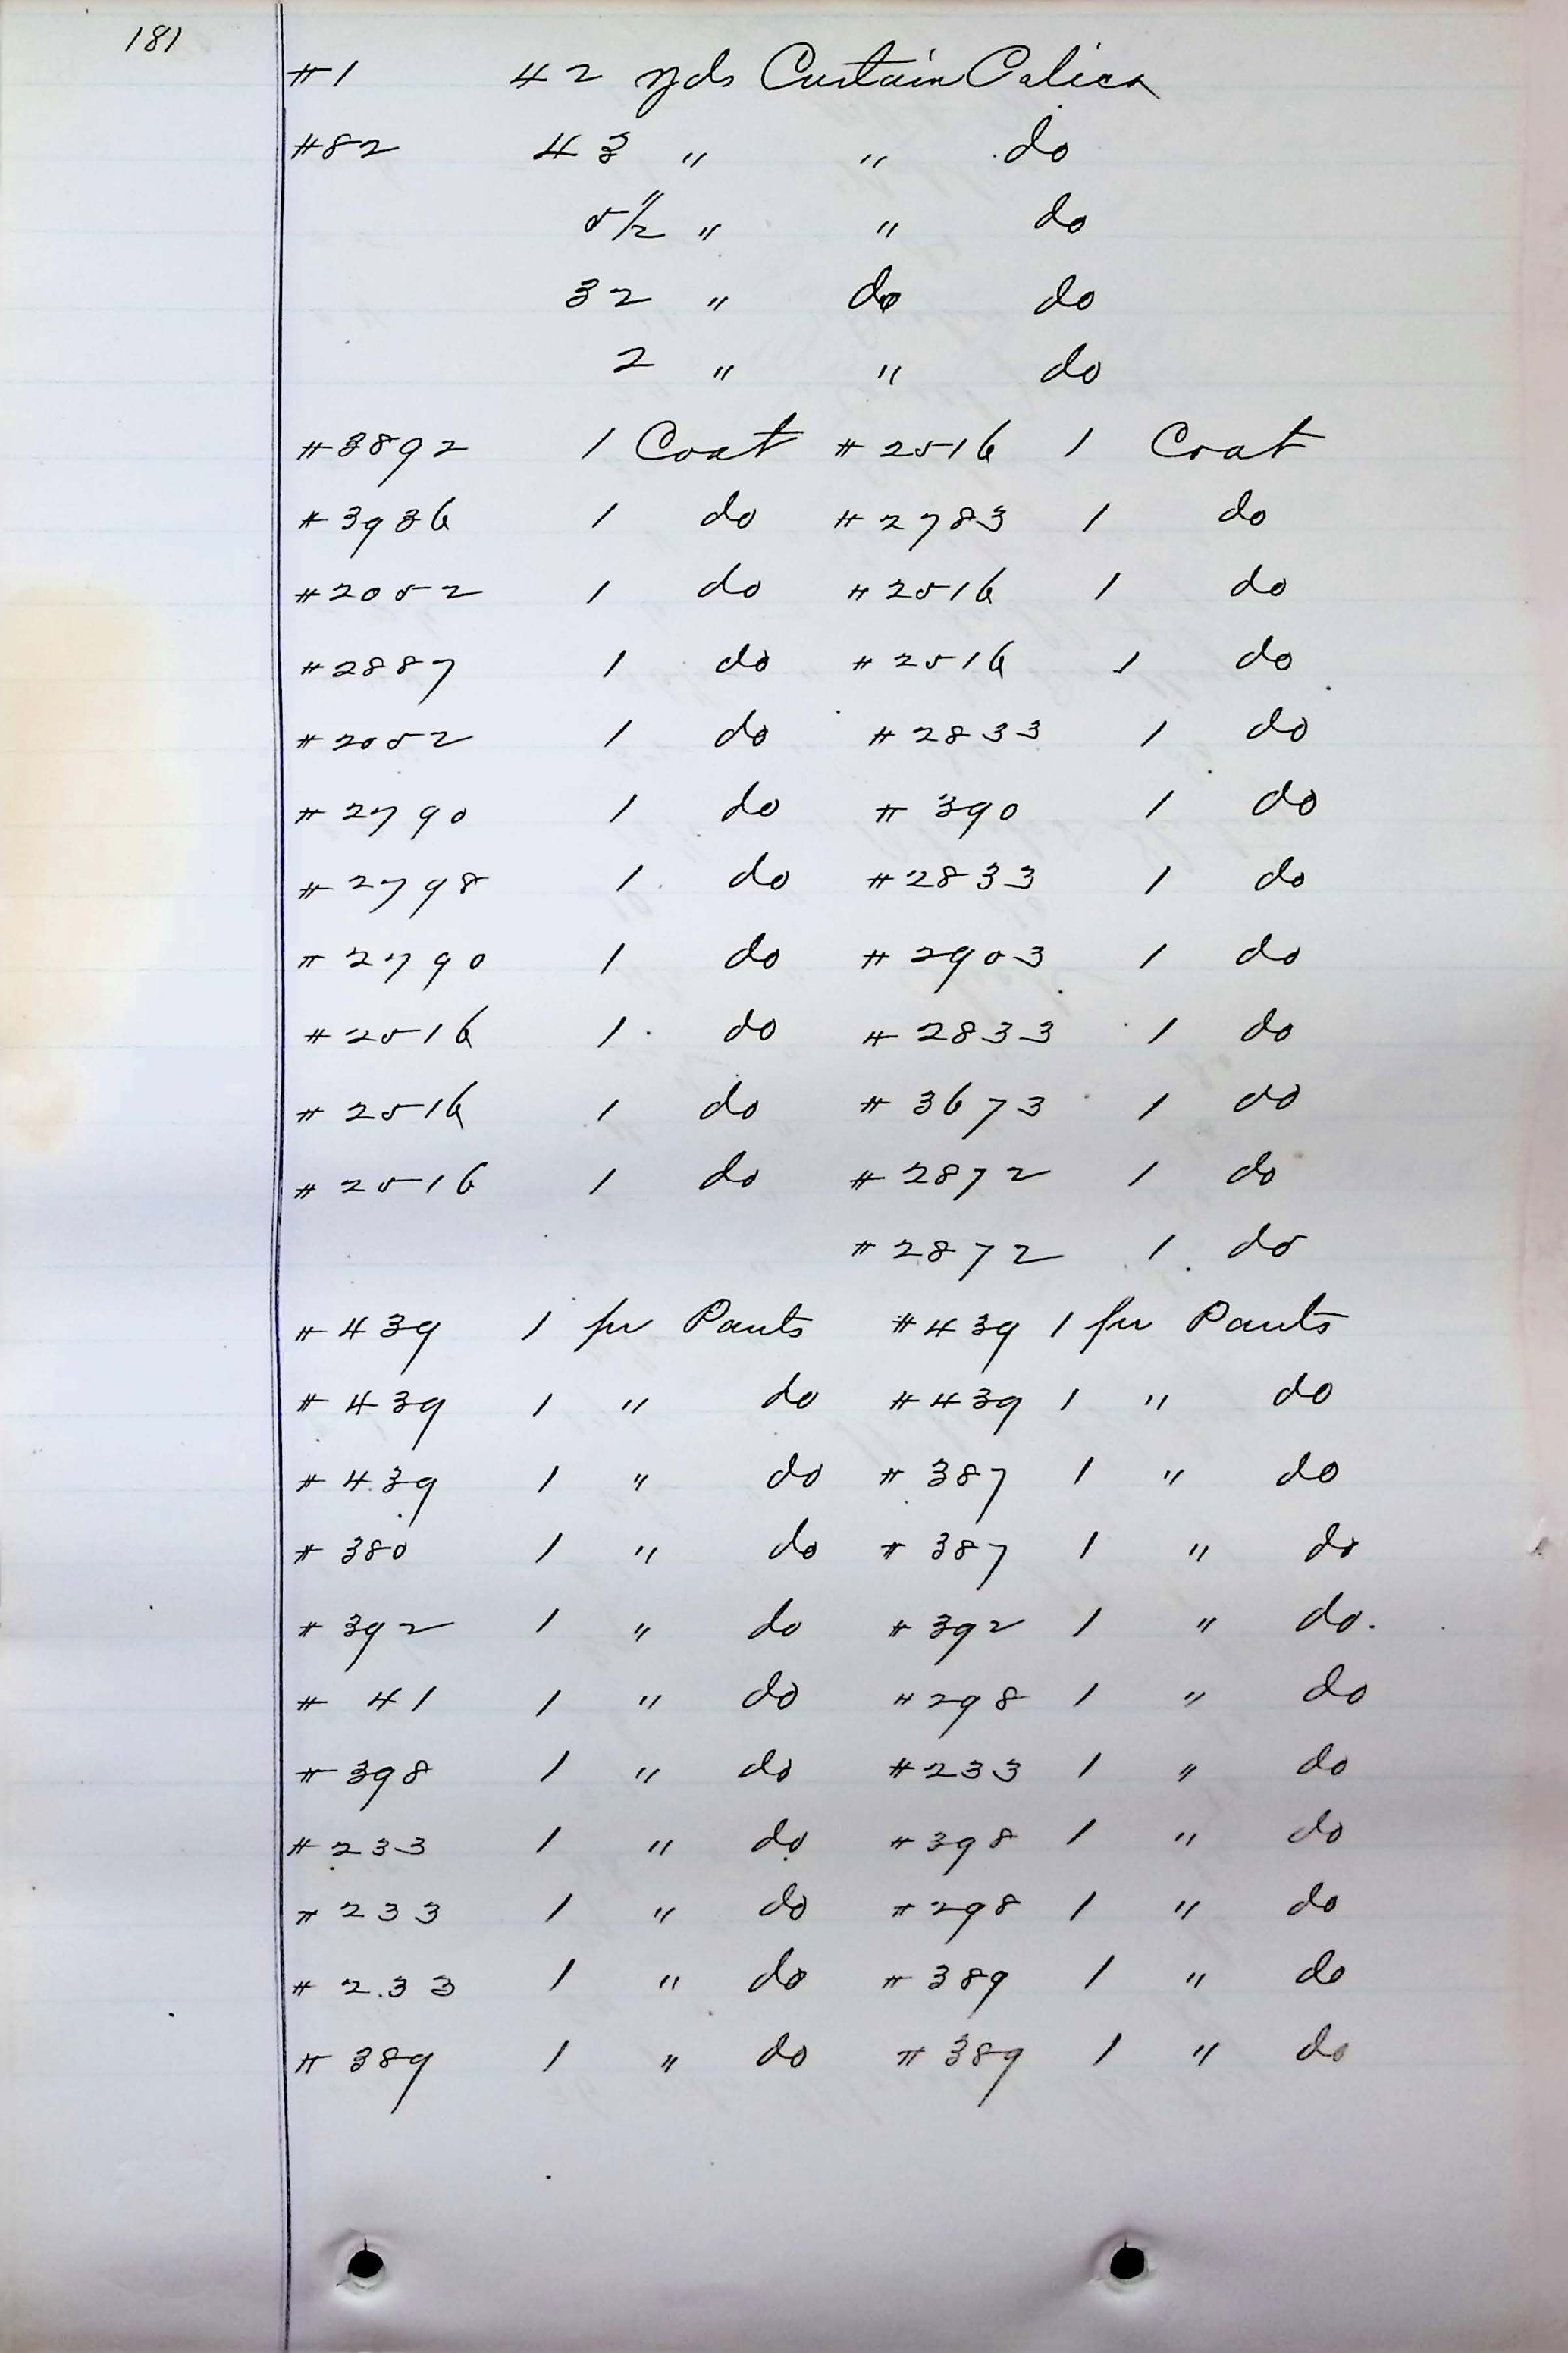 181
#1 42 yds Curtain Calico
#82 43 " " do
5 1/2 " " do
32 " do do
2 " " do
#3892 1 Coat #2516 1 Coat
#3936 1 do #2783 1 do
#2052 1 do #2516 1 do
#2887 1 do #2516 1 do
#2052 1 do #2833 1 do
#2790 1 do #390 1 do
#2798 1 do #2833 1 do
#2790 1 do #2903 1 do
#2516 1 do #2833 1 do
#2516 1 do #3673 1 do
#2516 1 do #2872 1 do
#2872 1 do
#439 1 pr Pants #439 1 pr Pants
#439 1 " do #439 1 " do
#439 1 " do #387 1 " do
#380 1 " do #387 1 " do
#392 1 " do #392 1 " do.
# 41 1 " do #298 1 " do
#398 1 " do #233 1 " do
#233 1 " do #398 1 " do
#233 1 " do #298 1 " do
#233 1 " do #389 1 " do
#389 1 " do #389 1 " do